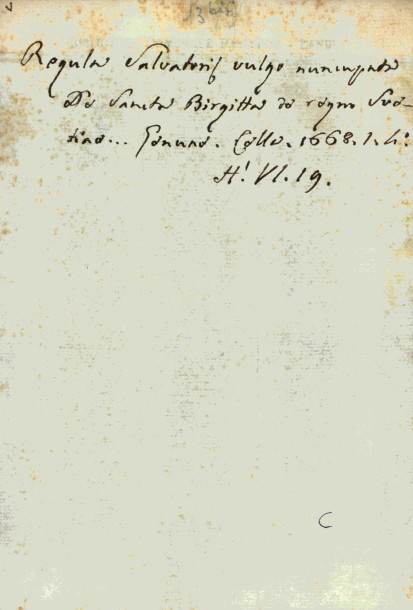 Regula Salvatoris vulgo nuncupata
De Sancta Birgitta de regno Sve-
tiae... Romunae. Colle. 1668. 1. 4:
H! VI. 19.
C